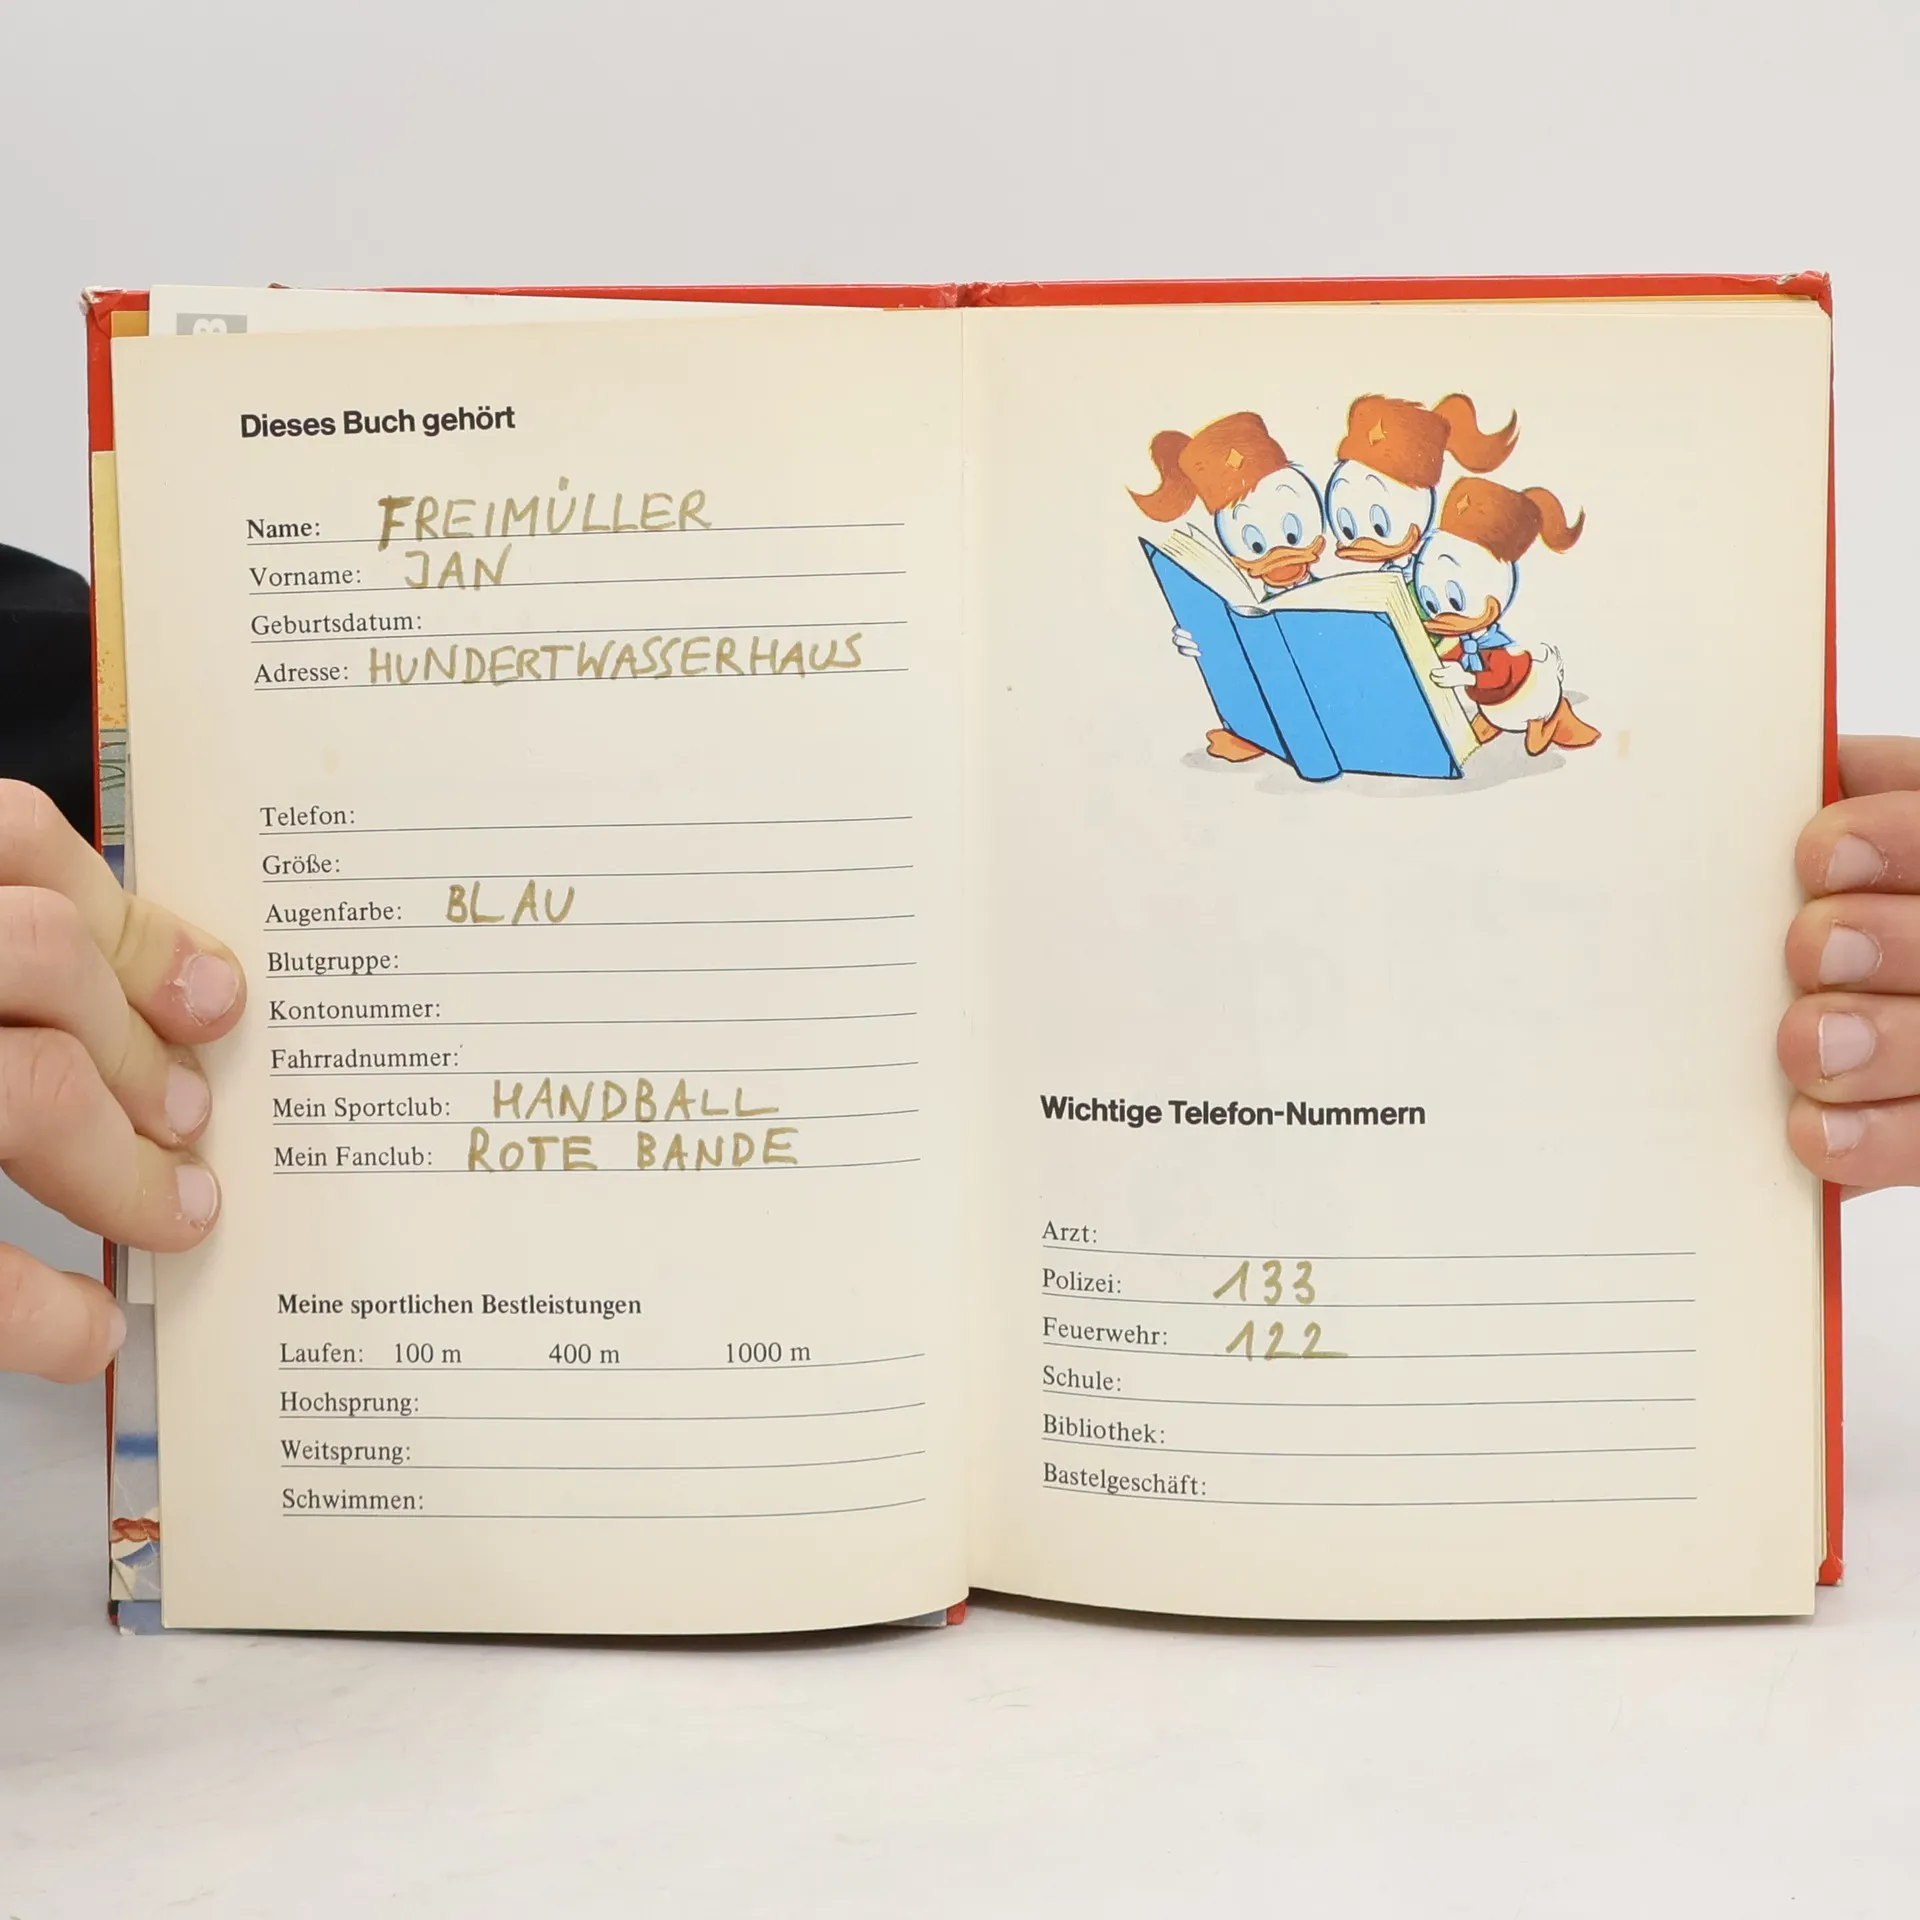 Dieses Buch gehört
Name: FREIMÜLLER
Vorname: JAN
Geburtsdatum:
Adresse: HUNDERTWASSERHAUS
Telefon:
Größe:
Augenfarbe: BLAU
Blutgruppe:
Kontonummer:
Fahrradnummer:
Mein Sportclub: HANDBALL
Mein Fanclub: ROTE BANDE
Meine sportlichen Bestleistungen
Laufen: 100 m 400 m 1000 m
Hochsprung:
Weitsprung:
Schwimmen:
Wichtige Telefon-Nummern
Arzt:
Polizei: 133
Feuerwehr: 122
Schule:
Bibliothek:
Bastelgeschäft: